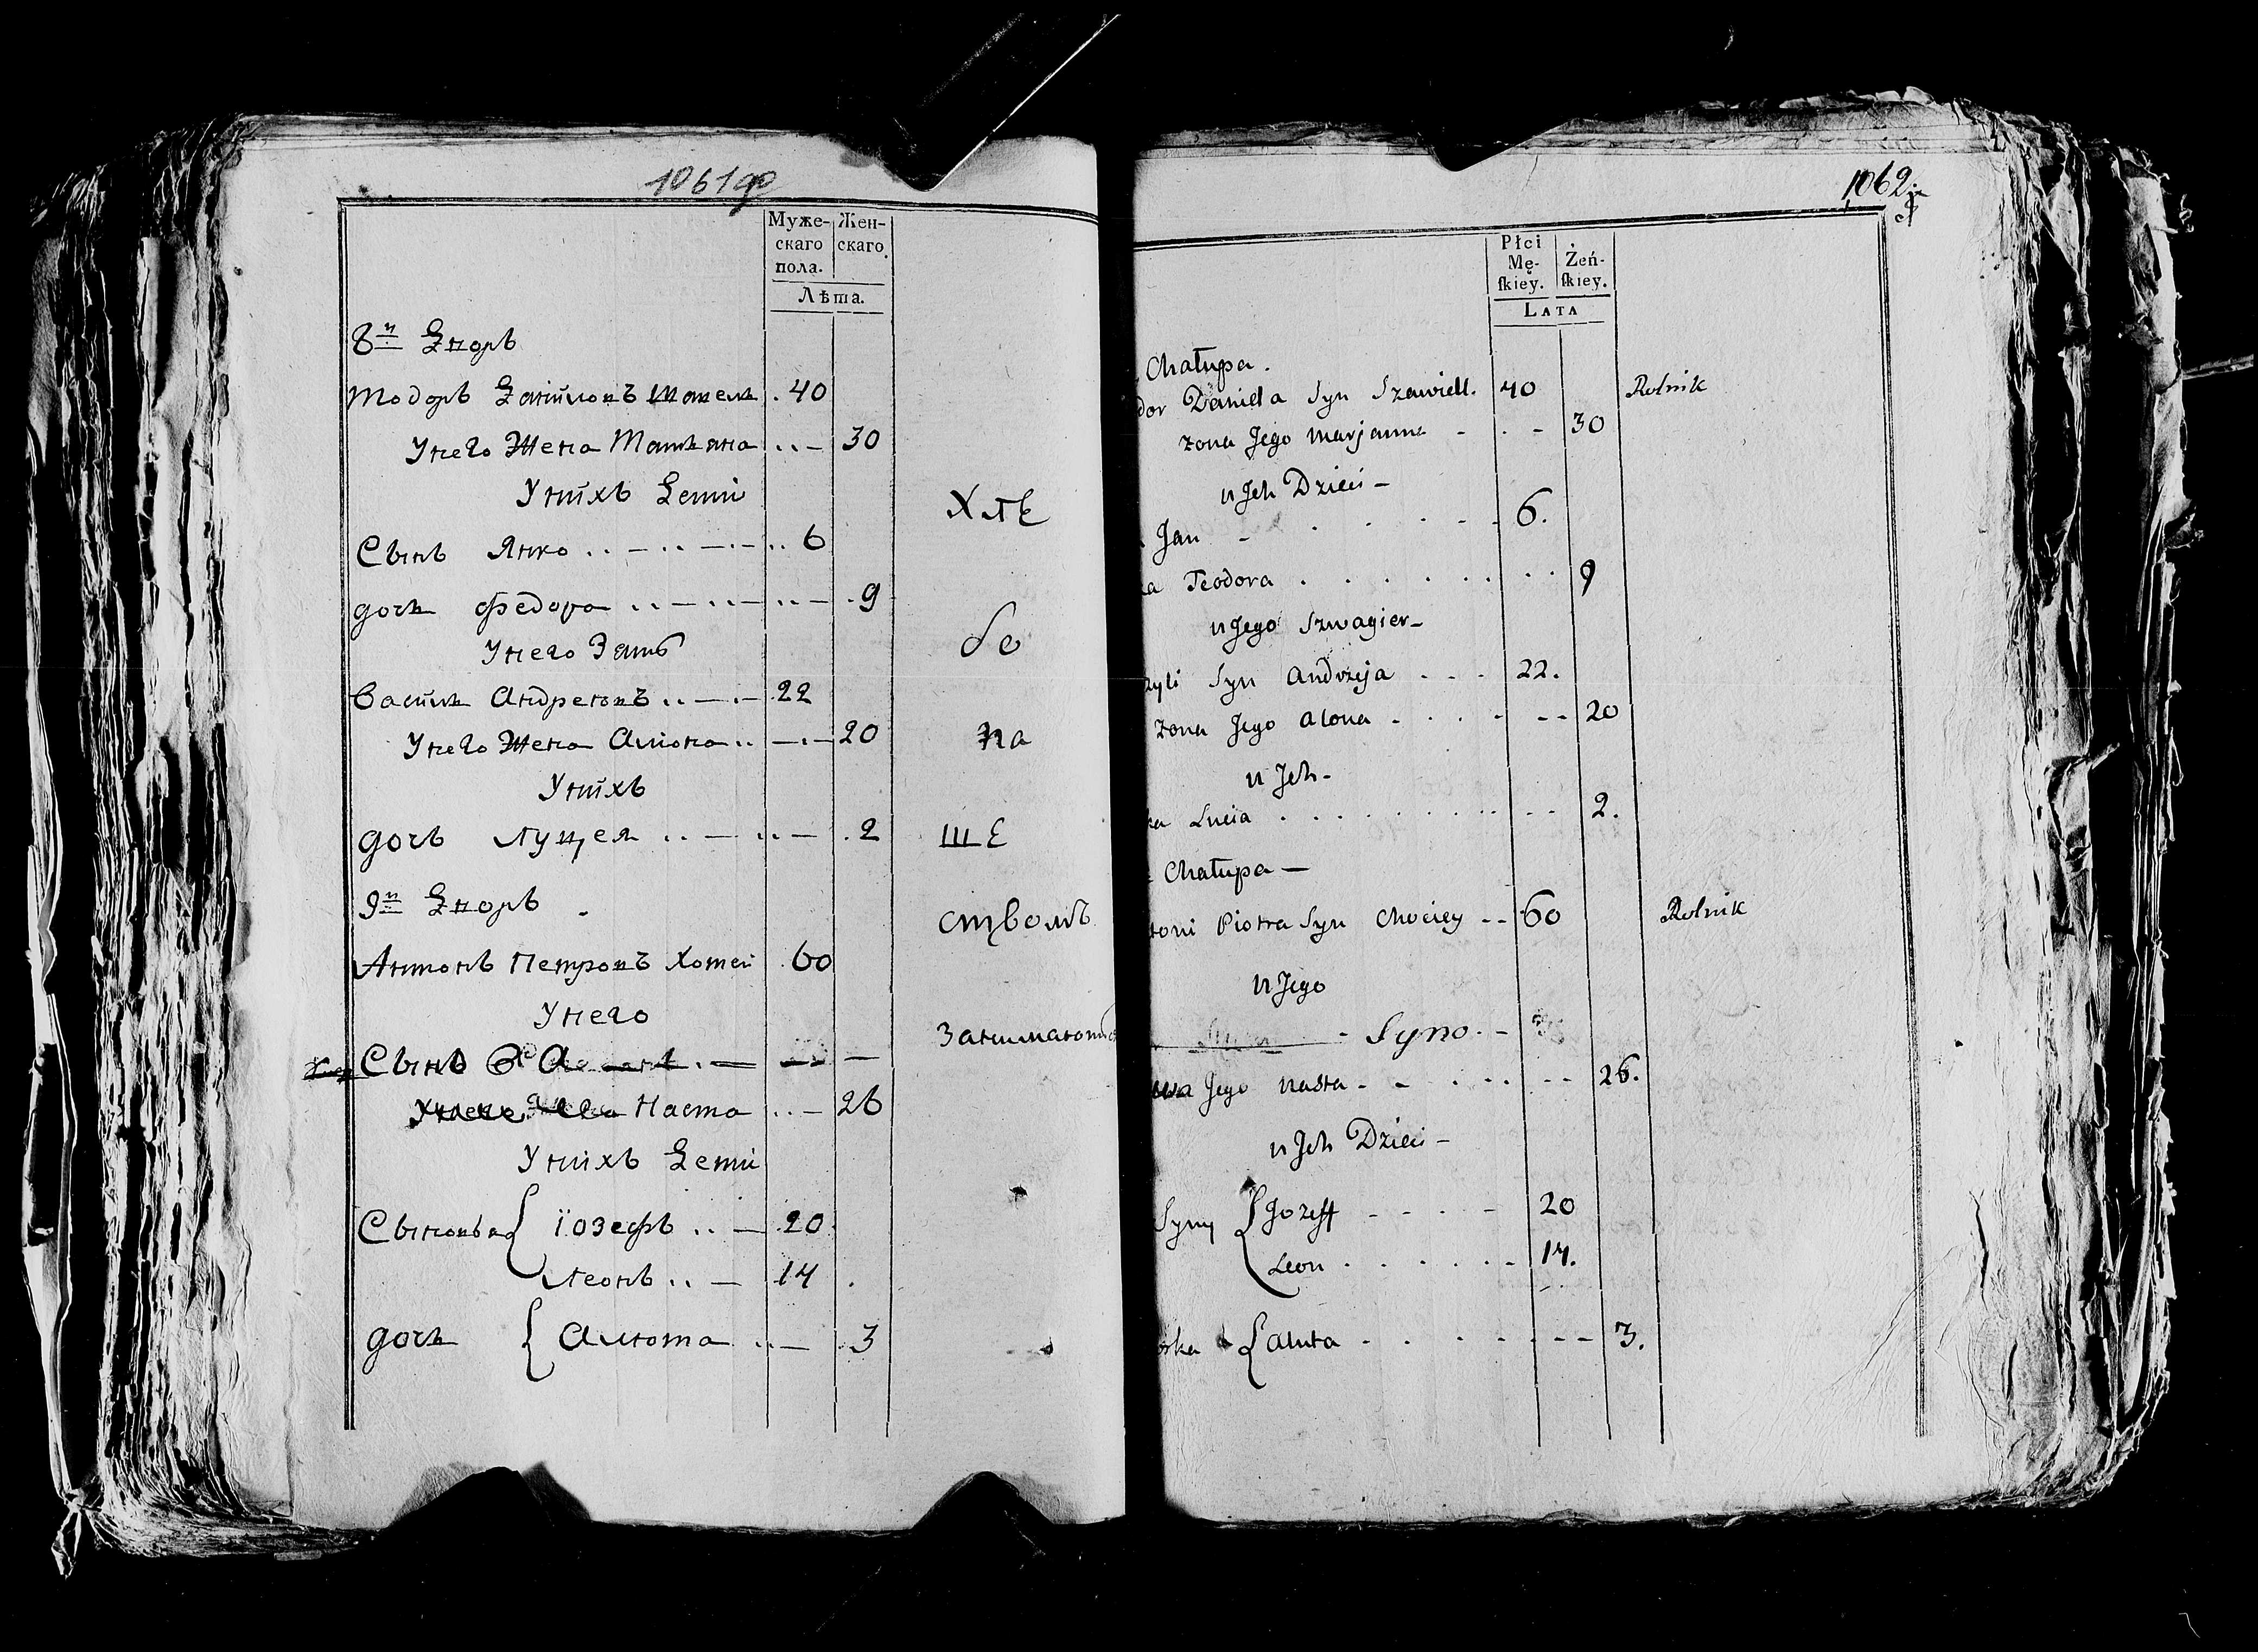 1061
Муже-
скаго
пола.
Жен-
скаго.
Лѣта.
8й Дворъ
Тодоръ Данилов 40
У него Жена Марьяна 30
У нихъ Дети
Сынъ Янко 6
дочь Федора 9
У него Зять
Василь Андреевъ 22
У него Жена Алиона 20
У нихъ
дочь Луцея 2
9й Дворъ
Антонъ Петровъ Хотей 60
У него
Сынъ
Наста 26
У нихъ Дети
Сыновья { іозефъ 20
Леонъ 14
дочь { Анюта 3
хлѣ
бо
па
ше
ством
занимаютс
1062
Płci
Mę-
ſkiey.
Żeń-
ſkiey.
LATA
Chałupa.
dor Daniela Syn Szawiell. 40 Rolnik
żona Jego Marjanna - . - 30
u Jch Dzieci -
Jan - 6.
ka Teodora 9
u Jego Szwagier -
zyli Syn Andrzeja 22.
żona Jego Alona 20
u Jch -
ka Lucia 2.
Chałupa -
toni Piotra Syn Chociey -- 60 Rolnik
u Jego
Syno
Jego Nasta - 26.
u Jch Dzieci -
Syny { Jozeff 20
Leon 14.
orka { Aluta 3.